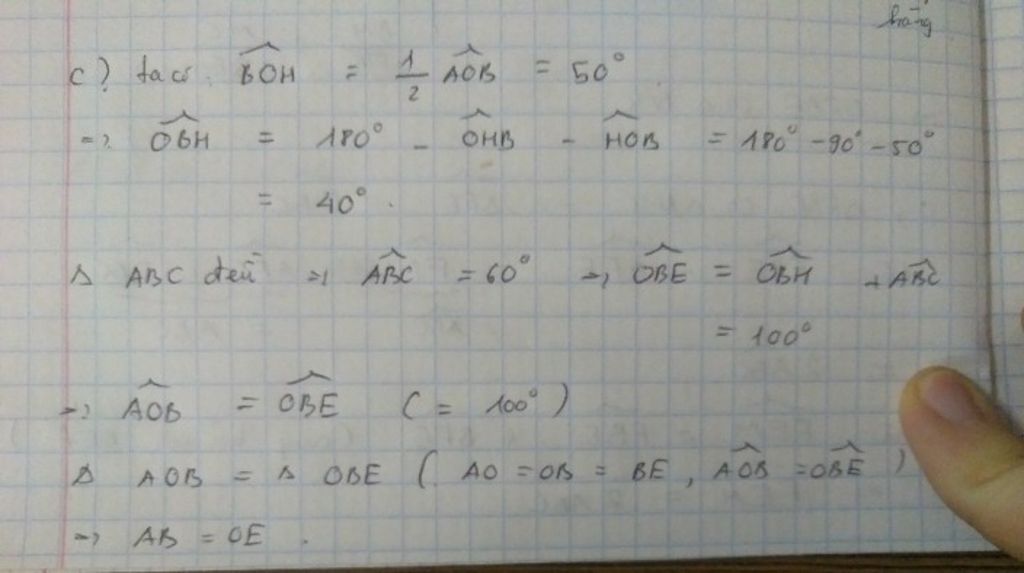 hàng
c) ta có. $\widehat{BOH}$ = $\frac{1}{2}$ $\widehat{AOB}$ = 50°
=> $\widehat{OBH}$ = 180° - $\widehat{OHB}$ - $\widehat{HOB}$ = 180° - 90° - 50°
= 40°.
Δ ABC đều => $\widehat{ABC}$ = 60° => $\widehat{OBE}$ = $\widehat{OBH}$ + $\widehat{ABC}$
= 100°
=> $\widehat{AOB}$ = $\widehat{OBE}$ ( = 100° )
Δ AOB = Δ OBE ( AO = OB = BE, $\widehat{AOB}$ = $\widehat{OBE}$ )
=> AB = OE.